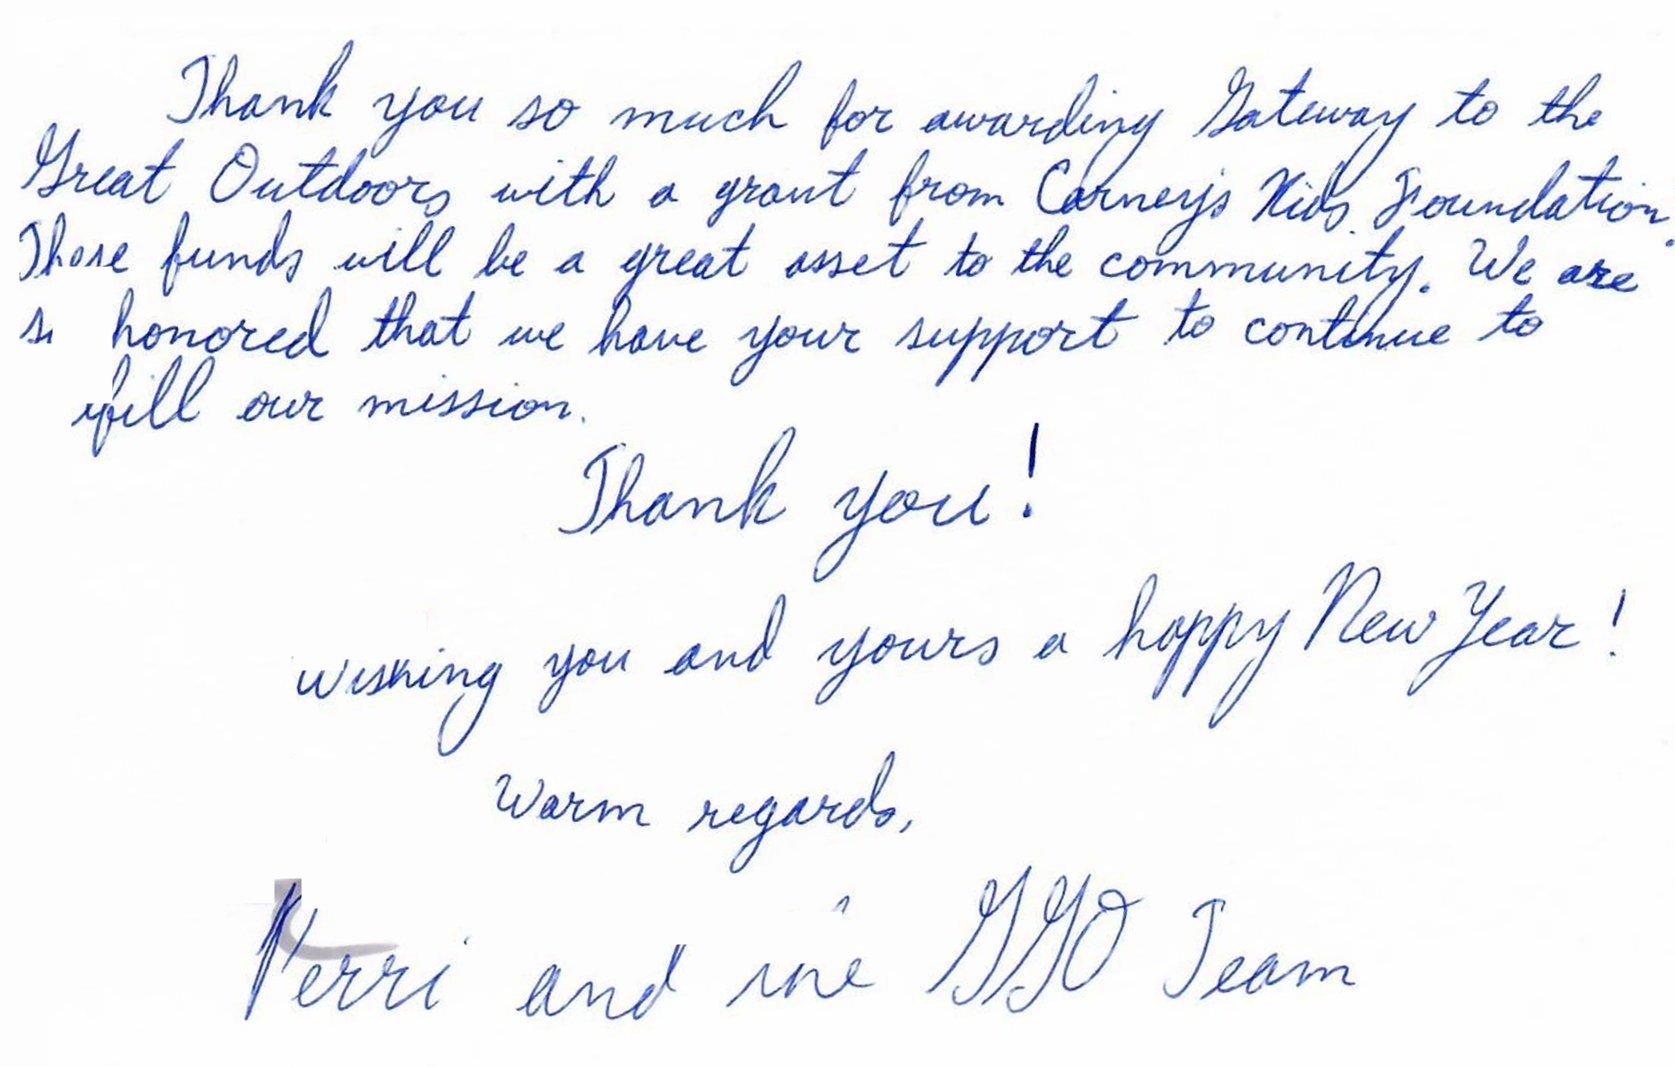 Thank you so much for awarding Gateway to the
Great Outdoors with a grant from Carney's Kids Foundation.
These funds will be a great asset to the community. We are
so honored that we have your support to continue to
fill our mission.
Thank you!
Wishing you and yours a happy New Year!
Warm regards,
and the GGO Team